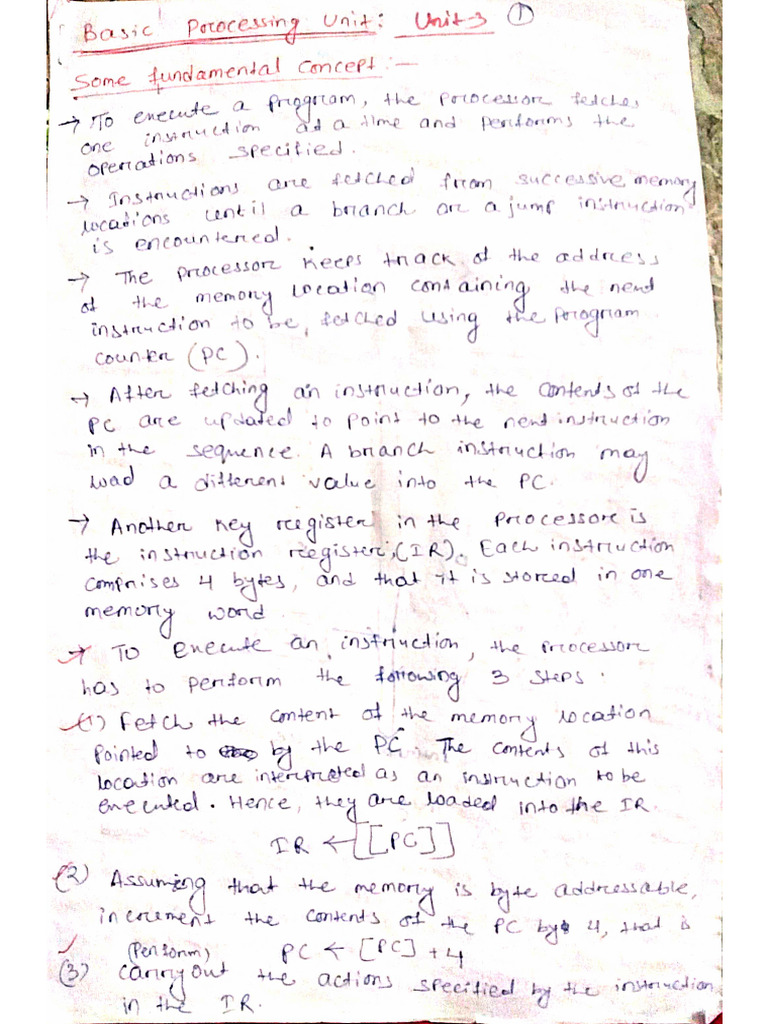 Basic Processing Unit: Unit-3 ①
Some fundamental Concept :—
→ To execute a program, the processor fetches
one instruction at a time and performs the
operations specified.
→ Instructions are fetched from successive memory
locations until a branch or a jump instruction
is encountered.
→ The processor keeps track of the address
of the memory location containing the next
instruction to be fetched using the program
counter (PC).
→ After fetching an instruction, the contents of the
PC are updated to point to the next instruction
in the sequence. A branch instruction may
load a different value into the PC.
→ Another key register in the processor is
the instruction register, (IR). Each instruction
comprises 4 bytes, and that it is stored in one
memory word.
→ To execute an instruction, the processor
has to perform the following 3 steps.
(1) Fetch the content of the memory location
pointed to by the PC. The contents of this
location are interpreted as an instruction to be
executed. Hence, they are loaded into the IR.
IR ← [[PC]]
(2) Assuming that the memory is byte addressable,
increment the contents of the PC by 4, that is
(Perform) PC ← [PC] + 4
(3) carry out the actions specified by the instruction
in the IR.